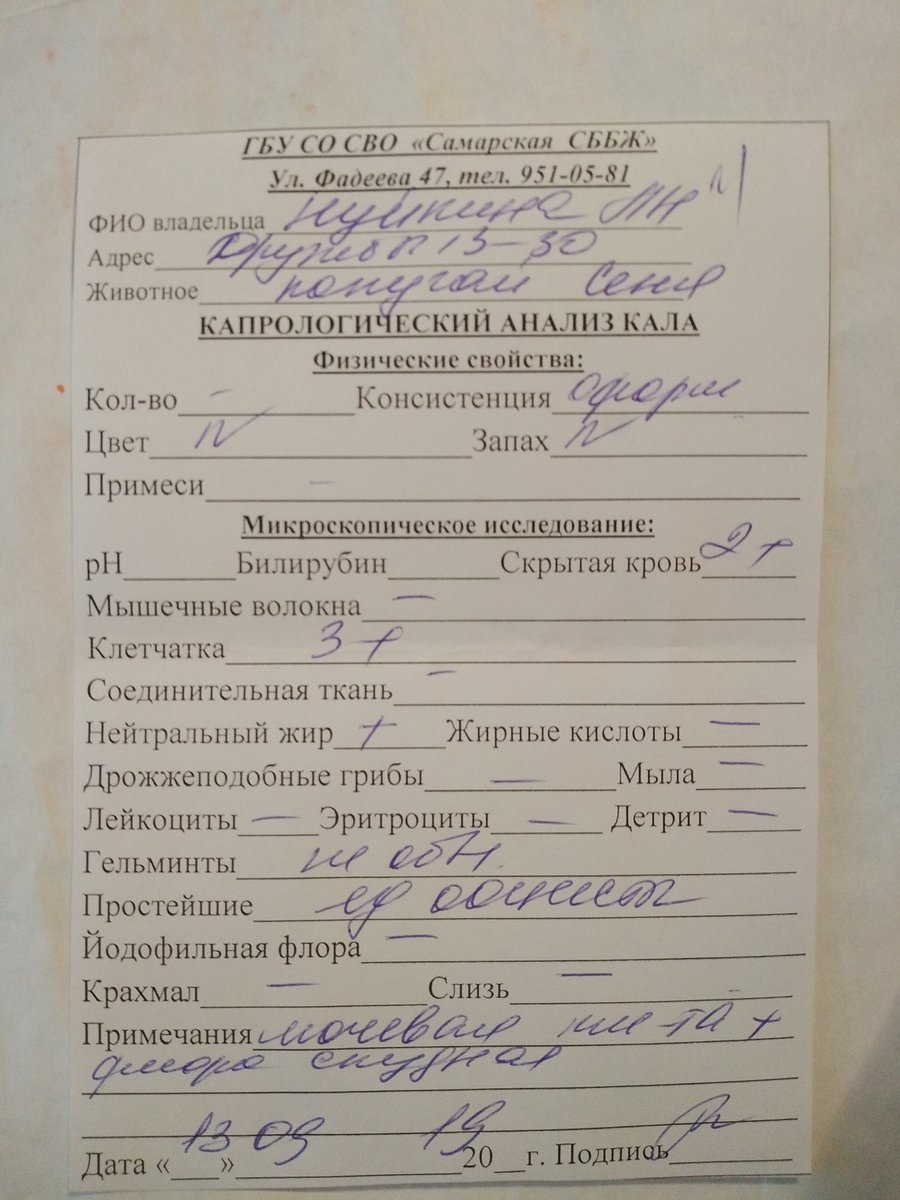 ГБУ СО СВО «Самарская СББЖ»
Ул. Фадеева 47, тел. 951-05-81
ФИО владельца
Адрес Дружбы 13-30
Животное попугай Сеня
КАПРОЛОГИЧЕСКИЙ АНАЛИЗ КАЛА
Физические свойства:
Кол-во - Консистенция оформ
Цвет N Запах N
Примеси -
Микроскопическое исследование:
pH Билирубин Скрытая кровь 2+
Мышечные волокна -
Клетчатка 3+
Соединительная ткань -
Нейтральный жир + Жирные кислоты -
Дрожжеподобные грибы - Мыла -
Лейкоциты - Эритроциты - Детрит -
Гельминты не обн.
Простейшие ед ооцисты
Йодофильная флора -
Крахмал - Слизь -
Примечания мочевая ки-та +
флора скудная
Дата «13» 09 19 20 г. Подпись